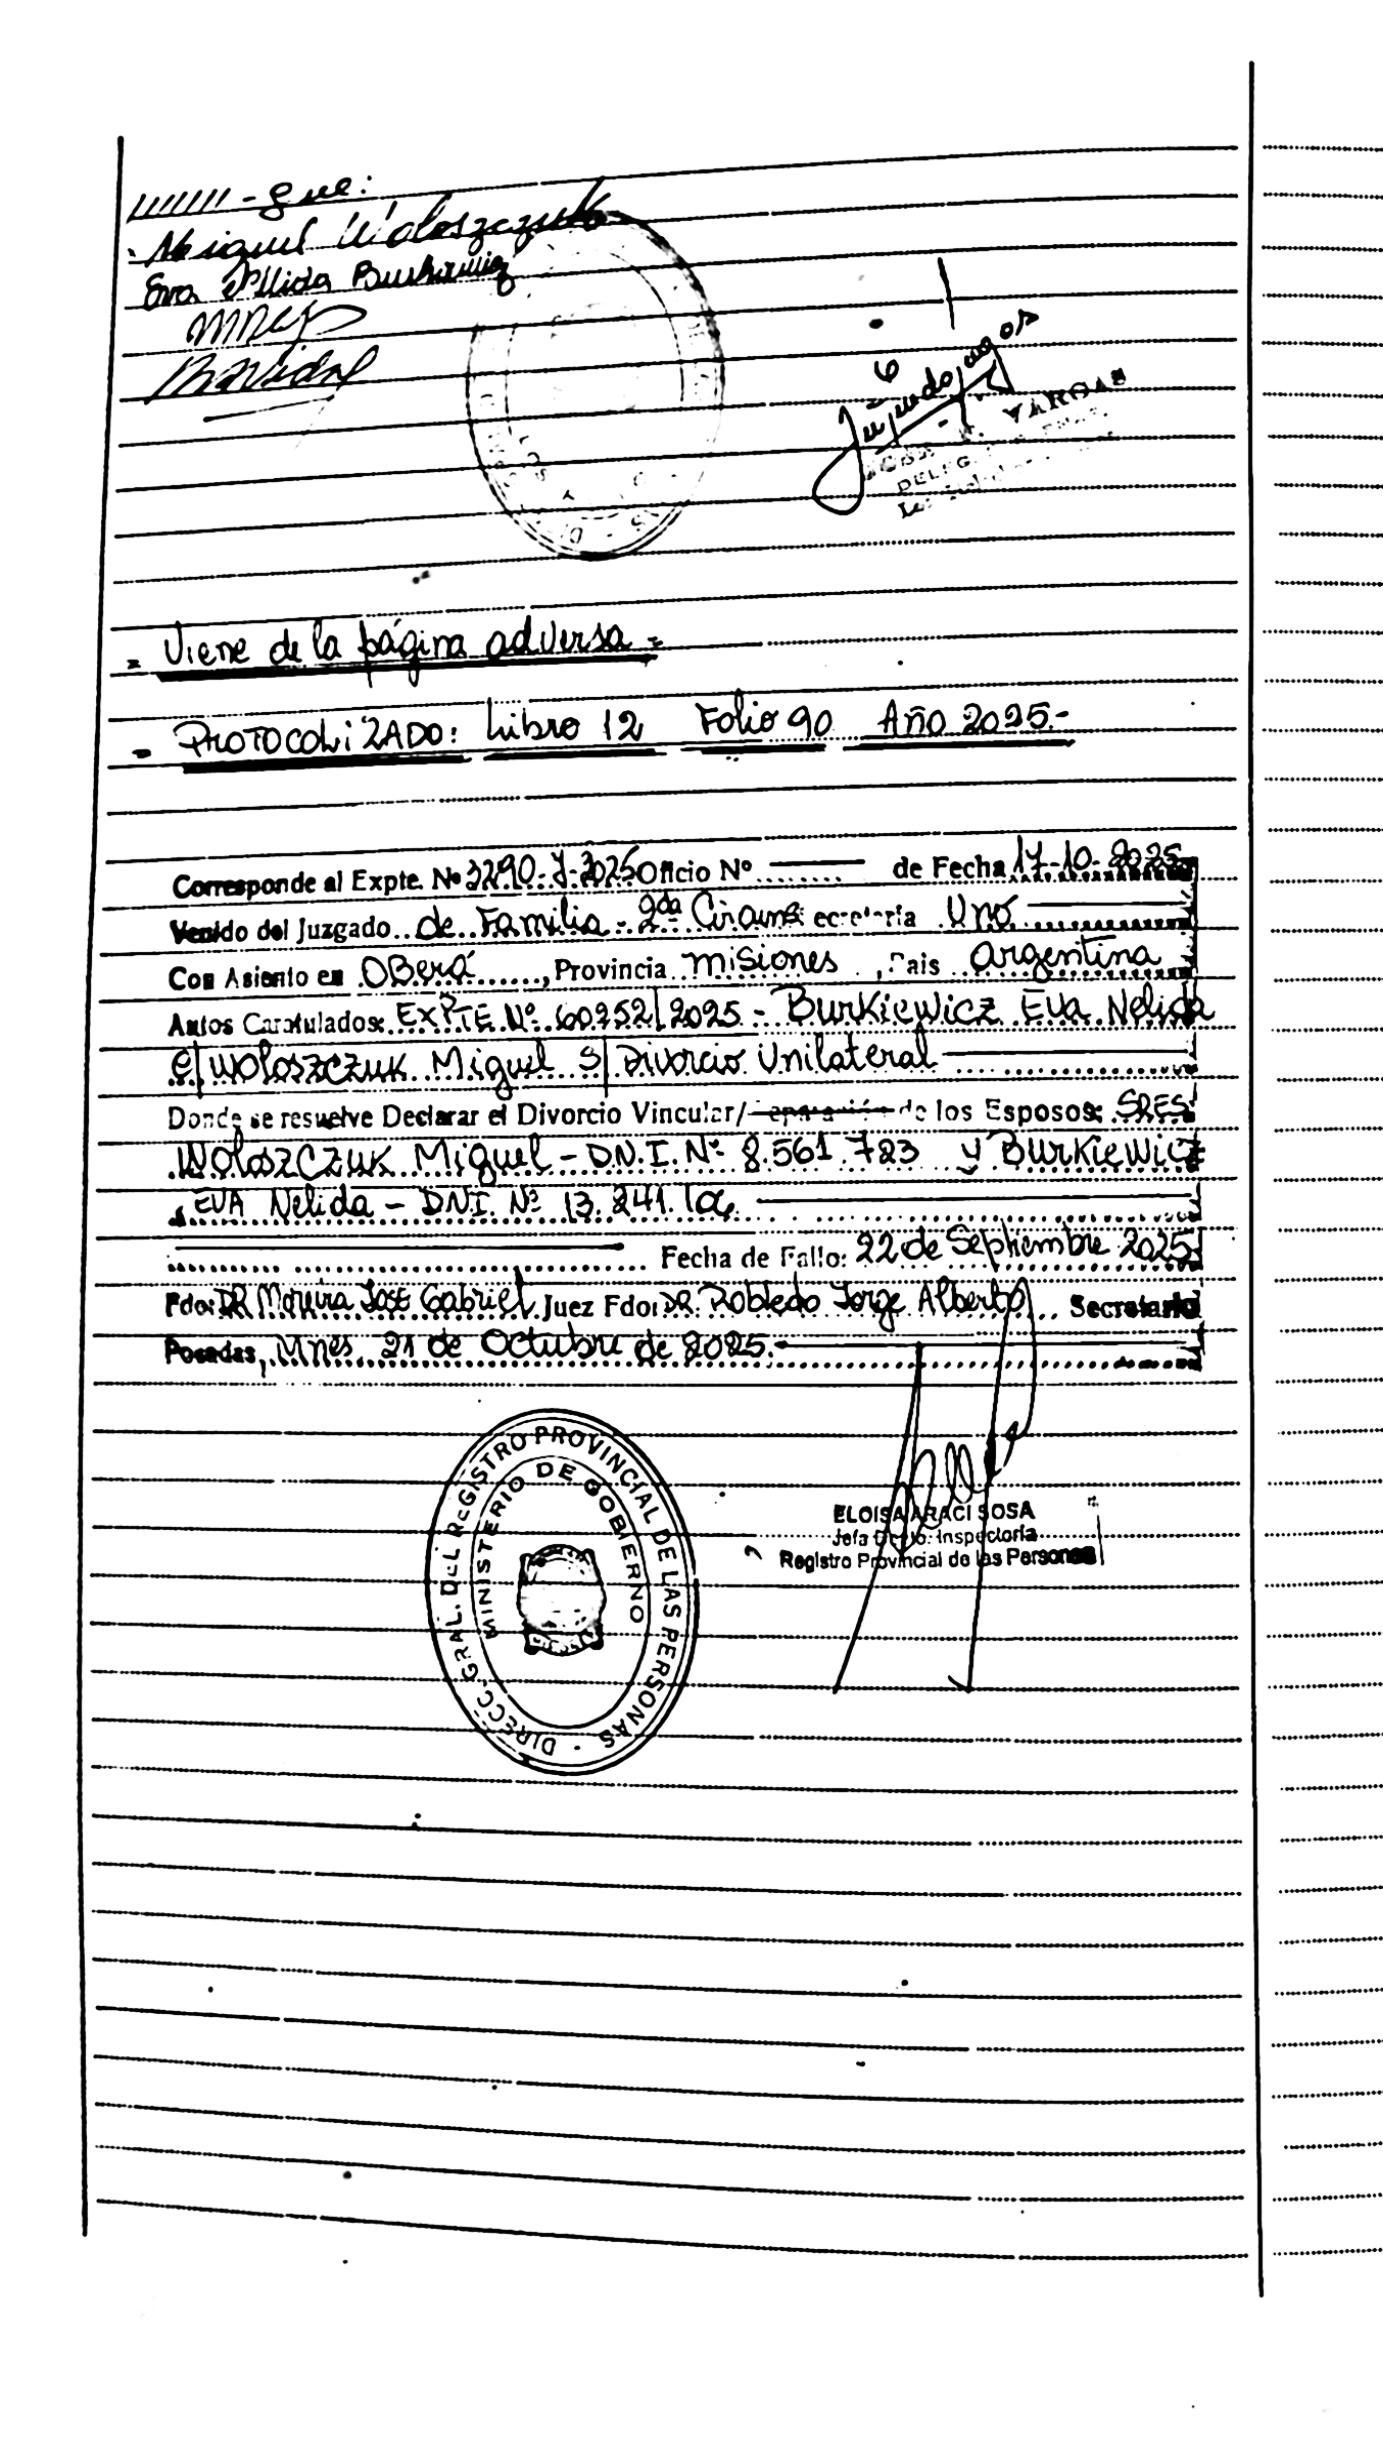 ////// - gue:
Miguel Woloszczuk
Eva Nélida Burkiewicz
VARGAS
= Viene de la página adversa =
= PROTOCOLIZADO: Libro 12 Folio 90 Año 2025.-
Corresponde al Expte. Nº 3290-J-2025 Oficio Nº ........ de Fecha 17-10-2025
Venido del Juzgado de Familia - 2da Circuns ecretaria Uno
Con Asiento en OBerá, Provincia Misiones, Pais Argentina
Autos Caratulados: EXPTE Nº 60252/2025 - Burkiewicz EVA Nelida
C/ Woloszczuk Miguel S/ Divorcio Unilateral
Donde se resuelve Declarar el Divorcio Vincular/ de los Esposos: SRES.
Woloszczuk Miguel - D.N.I. Nº 8.561.723 y Burkiewicz
EVA Nelida - DNI. Nº 13.241.
Fecha de Fallo: 22 de Septiembre 2025
Fdo: DR Moreira José Gabriel Juez Fdo: DR. Robledo Jorge Alberto Secretario
Posadas, Mnes, 21 de Octubre de 2025.-
DIRECC. GRAL. DEL REGISTRO PROVINCIAL DE LAS PERSONAS
MINISTERIO DE GOBIERNO
ELOISA ARACI SOSA
Jefa Dpto. Inspectoría
Registro Provincial de las Personas